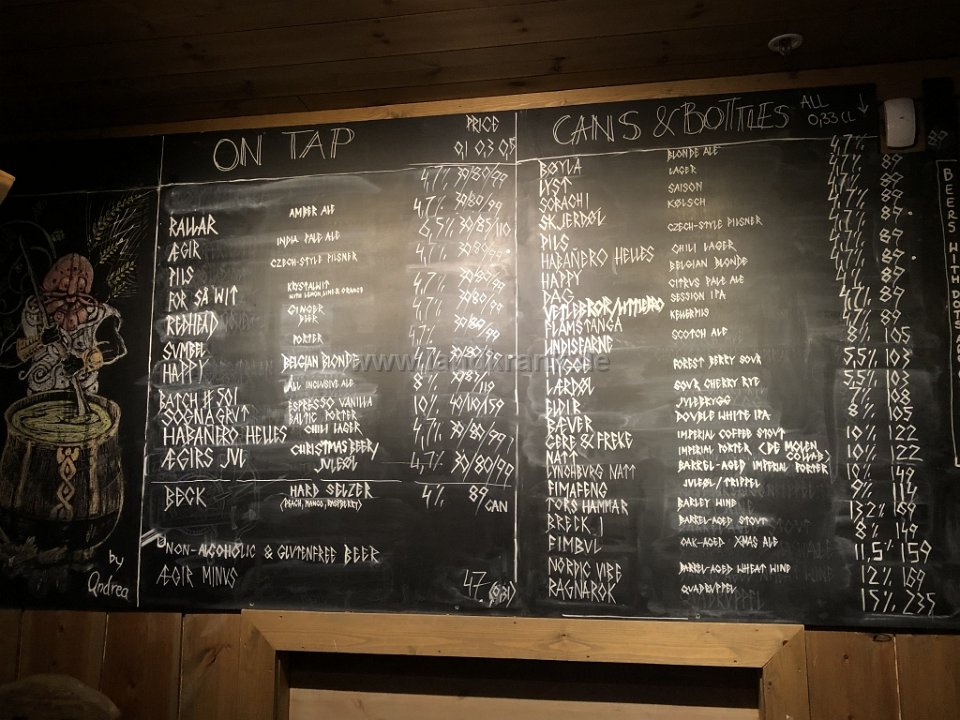 ON TAP
PRICE
0,1 0,3 0,5
4,7% 30/80/99
RALLAR AMBER ALE 4,7% 30/80/99
ÆGIR INDIA PALE ALE 6,5% 30/85/110
PILS CZECH-STYLE PILSNER 4,7% 30/80/99
FOR SÅ WIT KRSTALWIT 4,7% 30/80/99
WITH LEMON, LIME & ORANGE
REDHEAD GINGER BEER 4,7% 30/80/99
SVMBEL PORTER 4,7% 30/80/99
HAPPY BELGIAN BLONDE 4,7% 30/80/99
BATCH # 501 ALL INCLUSIVE ALE 8%
SOGNAGRVT ESPRESSO VANILLA BALTIC PORTER 10% 40/101/159
HABANERO HELLES CHILI LAGER 4,7% 30/80/99
ÆGIRS JVL CHRISTMAS BEER/ JVLEØL 4,7% 30/80/99
BECK HARD SELZER 4% 89 CAN
(PEACH, MANGO, RASPBERRY)
NON-ALCOHOLIC & GLUTENFREE BEER
ÆGIR MINUS 47 (0,31)
by Andrea
CANS & BOTTLES ALL 0,33 CL ↓
BØYLA BLONDE ALE 4,7% 89
LYST LAGER 4,7% 89
SORACHI SAISON 4,7% 89
SKJERDØL KØLSCH 4,7% 89
PILS CZECH-STYLE PILSNER 4,7% 89
HABAÑERO HELLES CHILI LAGER 4,7% 89
HAPPY BELGIAN BLONDE 4,7% 89
DAG CITRUS PALE ALE 4,7% 89
SESSION IPA 4,7% 89
FLÅMSTANGA KEWERPILS 4,7% 89
LINDISFARNE SCOTCH ALE 8% 105
HYGGE FOREST BERRY SOUR 5,5% 103
LÆRDØL SOUR CHERRY RYE 5,5% 103
ELDIR JVLEBRYGG 7% 108
BÆVER DOUBLE WHITE IPA 8% 105
GERE & FREKE IMPERIAL COFFEE STOUT 10% 122
NATT IMPERIAL PORTER (DE MOLEN COLLAB) 10% 122
LYNCHBURG NATT BARREL-AGED IMPERIAL PORTER 10% 148
FIMAFENG JVLEØL/TRIPPEL 9% 114
TORS HAMMAR BARLEY WIND 13,2% 169
BRECK 1 BARREL-AGED STOUT 8% 149
FIMBUL OAK-AGED XMAS ALE 11,5% 159
NORDIC VIBE BARREL-AGED WHEAT WIND 12% 169
RAGNAROK QUADRUPPEL 15% 235
BEERS WITH DOTS